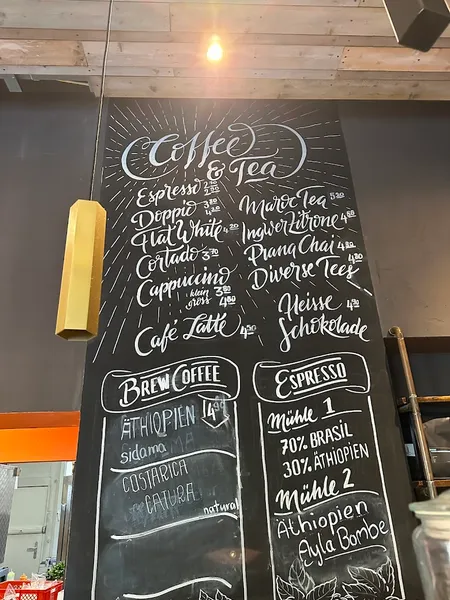 Coffee
& Tea
Espresso
Doppio
Flat White 4.20
Cortado 3.70
Cappuccino
klein 3.80
gross 4.80
Café Latte 4.90
Maroc Tea 5.20
IngwerZitrone 4.80
Prana Chai 4.80
Diverse Tees 4.30
Heisse 4.90
Schokolade
BREW COFFEE
ÄTHIOPIEN 4.90
sidama
COSTARICA
CATURA
natural
ESPRESSO
Mühle 1
70% BRASIL
30% ÄTHIOPIEN
Mühle 2
Äthiopien
Ayla Bombe